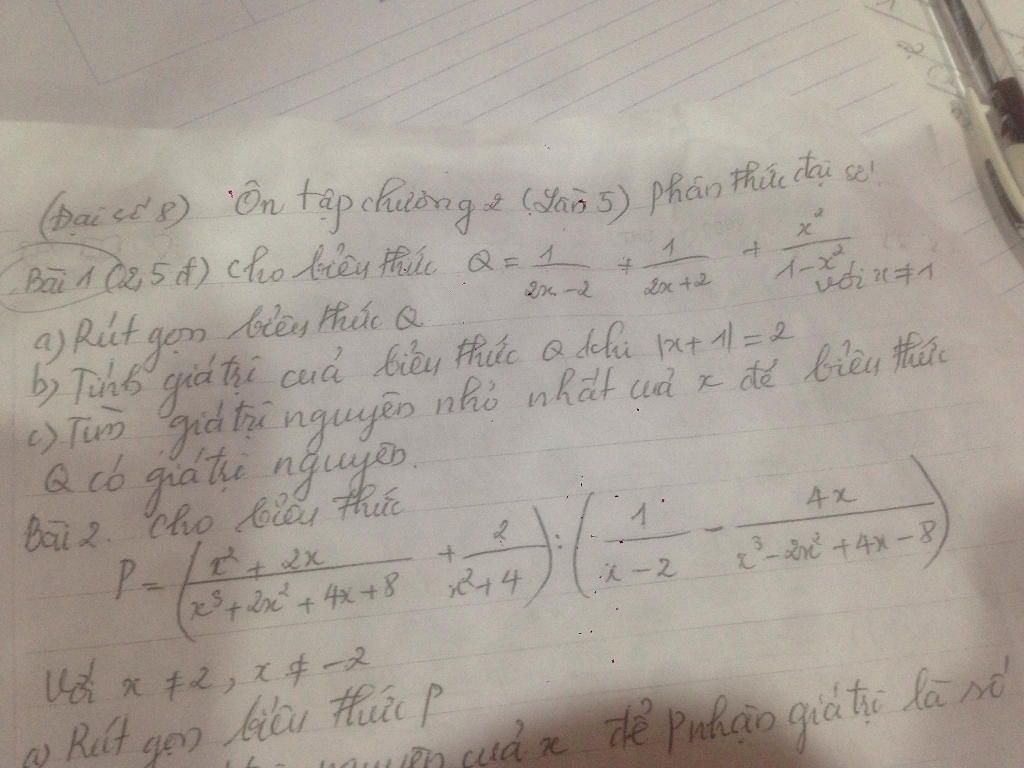 (Đại số 8) Ôn tập chương 2 (Lần 5) phân thức đại số
Bài 1 (2,5 đ) Cho biểu thức Q = 1/(2x-2) + 1/(2x+2) + x²/(1-x²)
với x ≠ 1
a) Rút gọn biểu thức Q
b) Tính giá trị của biểu thức Q khi |x+1| = 2
c) Tìm giá trị nguyên nhỏ nhất của x để biểu thức
Q có giá trị nguyên.
Bài 2. Cho biểu thức
P = ((x² + 2x)/(x³ + 2x² + 4x + 8) + 2/(x² + 4)) : (1/(x - 2) - 4x/(x³ - 2x² + 4x - 8))
Với x ≠ 2, x ≠ -2
a) Rút gọn biểu thức P
nguyên của x để P nhận giá trị là số